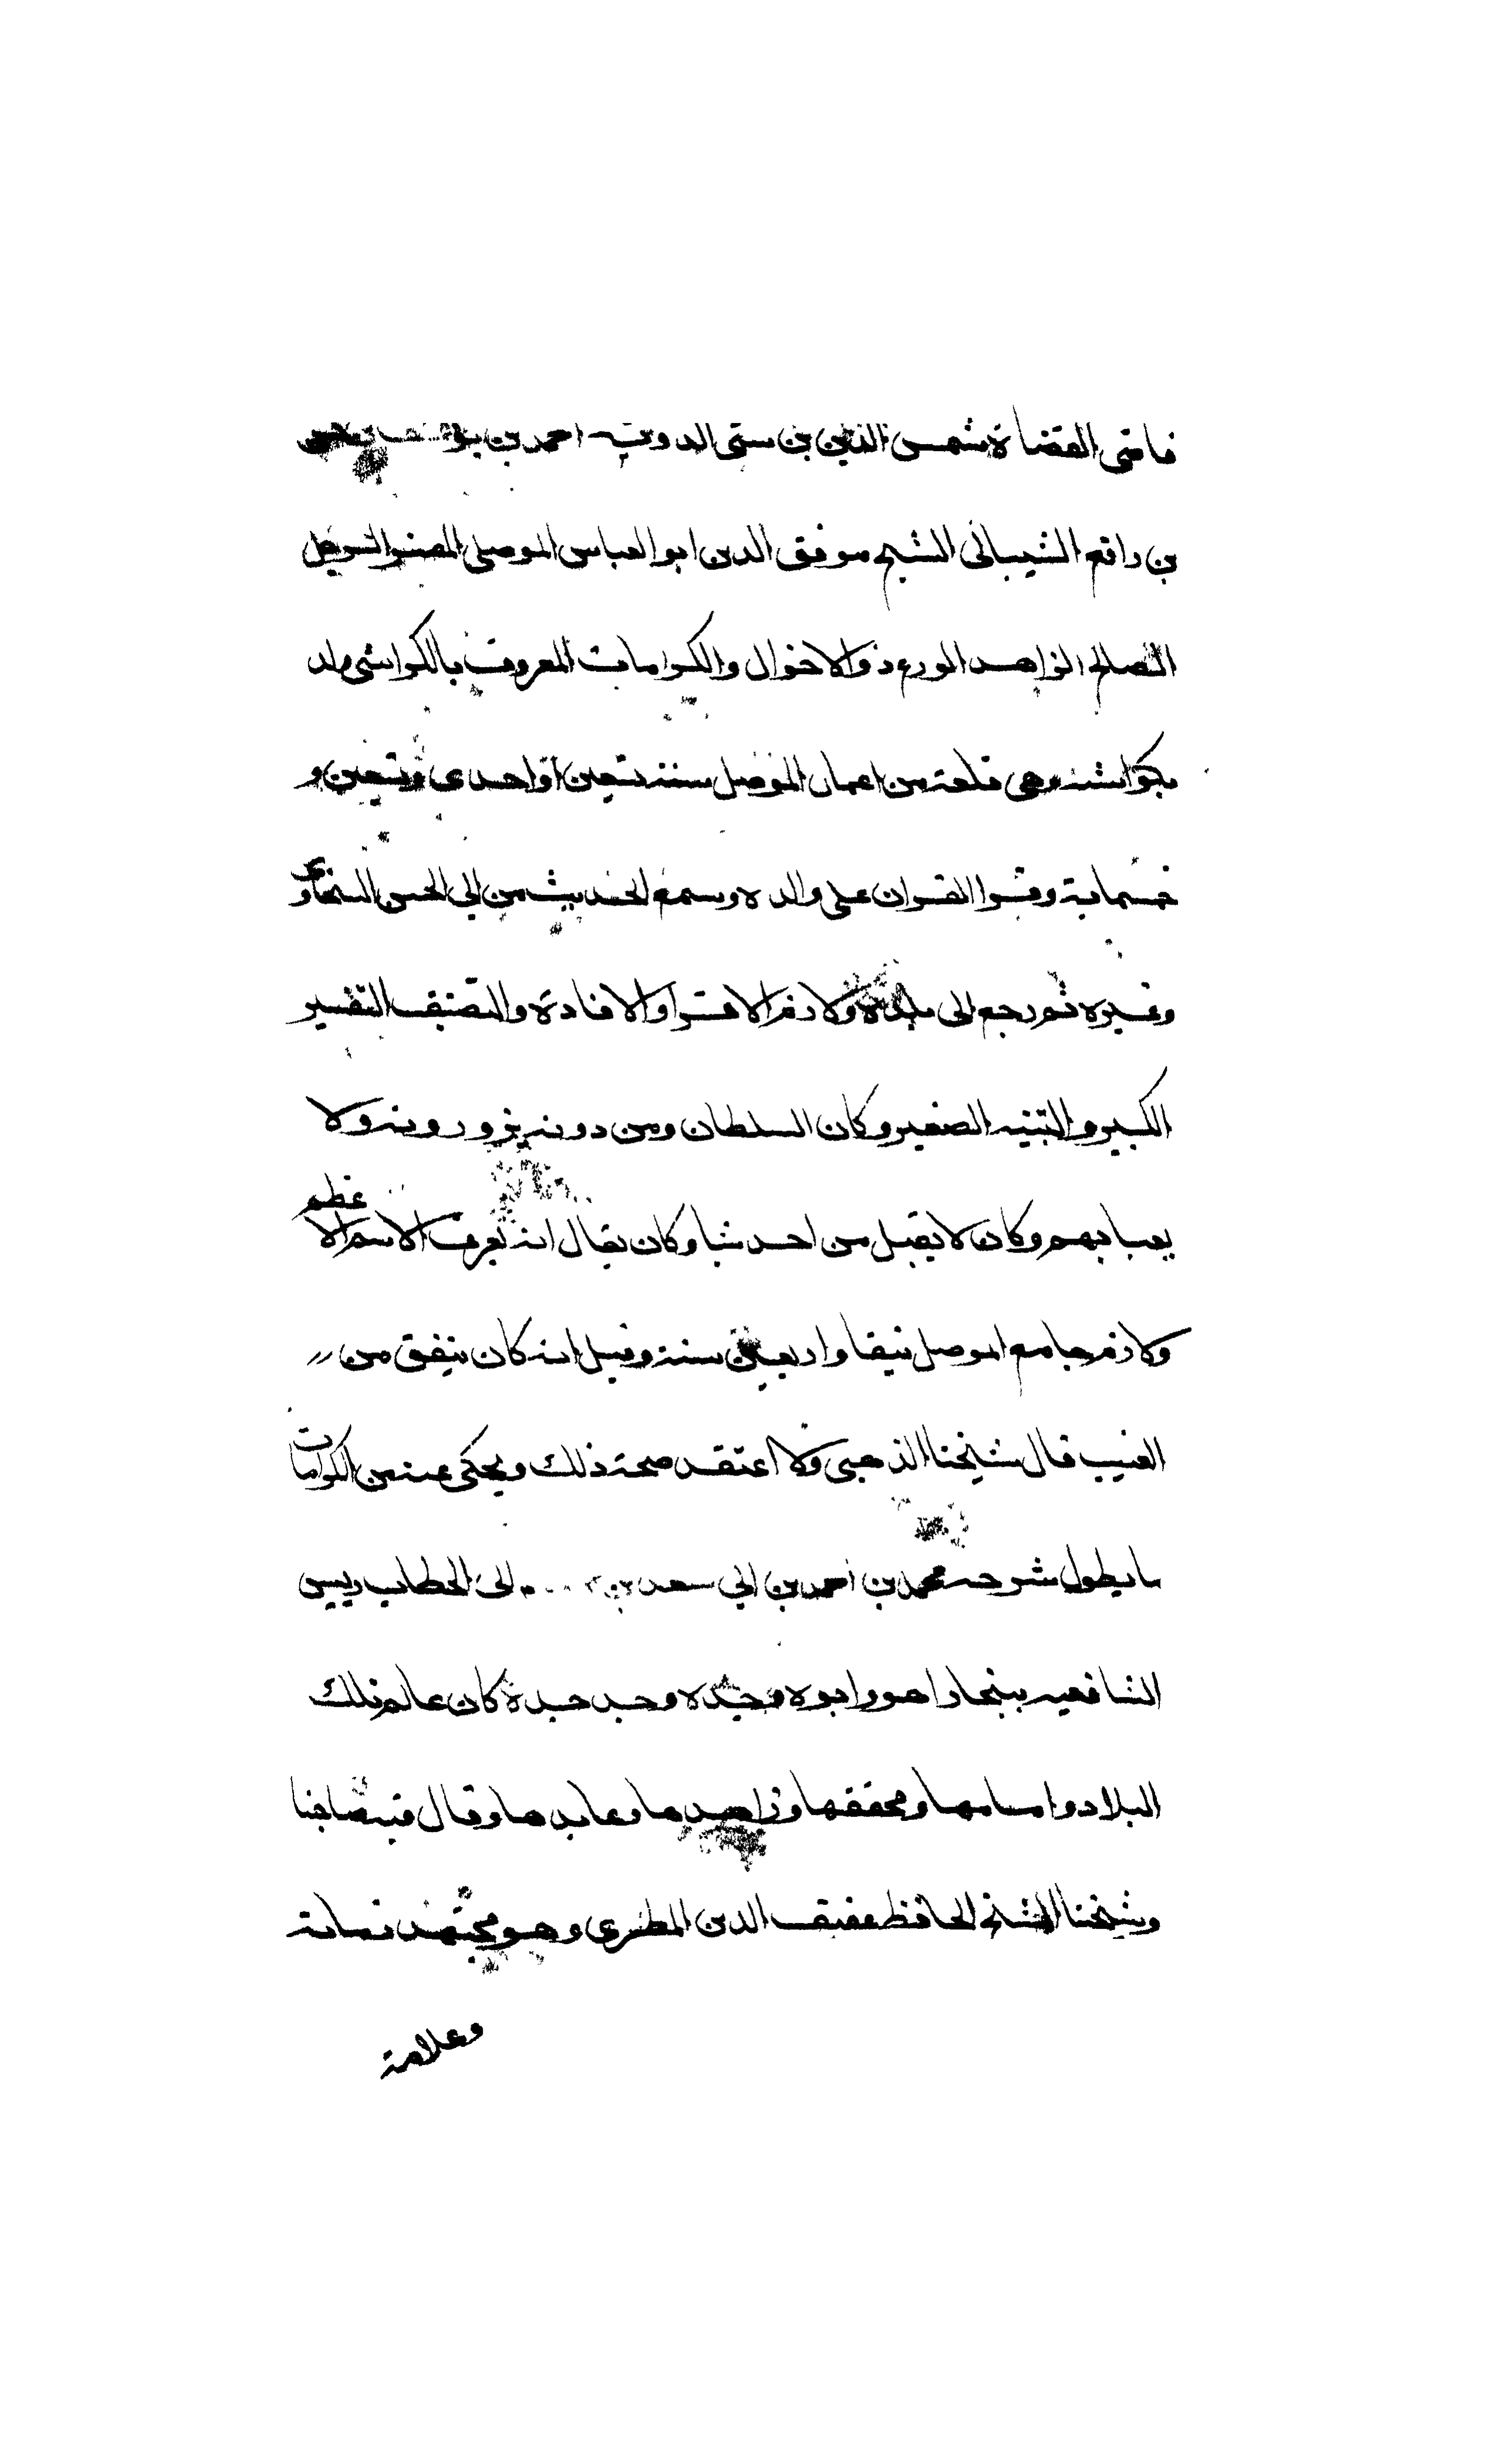 قاضي القضاة شمس الدين بن سني الدولة احمد بن يوسف بن حسن
بن رافع الشيباني الشيخ موفق الدين ابو العباس الموصلي المفسر الرجل
الصالح الزاهد الورع ذو الاحوال والكرامات المعروف بالكواشي ولد
بكواشه وهي قلعة من اعمال الموصل سنة تسعين او احدى وتسعين و
خمسماية وقرا القران على والده وسمع الحديث من ابي الحسن السخاوي
وغيره ثم رجع الى بلده ولازم الاقرا والافادة والتصنيف التفسير
الكبير والتفسير الصغير وكان السلطان ومن دونه يزورونه ولا
يعبا بهم وكان لا يقبل من احد شيا وكان يقال انه يعرف الاسم الاعظم
ولازم جامع الموصل نيفا واربعين سنة وقيل انه كان ينفق من
الغيب قال شيخنا الذهبي ولا اعتقد صحة ذلك ويحكى عنه من الكرامات
ما يطول شرحه محمد بن احمد بن ابي سعد بن ابي الخطاب رييس
الشافعيه ببخارا هو وابوه وجده وجد جده كان عالم تلك
البلاد وامامها ومحققها وزاهدها وعابدها وقال فيه صاحبنا
وشيخنا الشيخ الحافظ عفيف الدين المطري وهو مجتهد زمانه
وعلامة